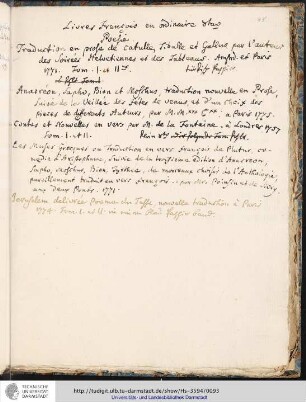 Livres François en ordinaire 8tavo
Poësie
Traduction en prose de Catulle, Tibulle et Gallus par l'auteur
des Soirées Helvetiennes et des Tableaux. Amst. et Paris
1771. Tom. I. et IIde
Anacréon, Sapho, Bion et Moschus traduction nouvelle en Prose
suivie de la Veillée des fêtes de Venus et d'un choix des
pieces de differents Auteurs, par M. M*** C** à Paris 1773.
Contes et Nouvelles en vers par M. de la Fontaine, à Londres 1757
Tom. I. et II.
Les Muses grecques ou Traduction en vers François de Plutus, co-
médie d'Aristophane, suivie de la troisieme édition d'Anacreon
Sapho, Moschus, Bion, Tyrthée, de morceaux choisis de l'Anthologie,
pareillement traduits en vers François par Mr. Poinsinet de Sivry
aux Deux Ponts. 1771.
Jerusalem delivrée Poeme du Tasse, nouvelle traduction à Paris
1774. Tom. I. et II.
TECHNISCHE
UNIVERSITÄT
DARMSTADT
http://tudigit.ulb.tu-darmstadt.de/show/Hs-3594/0093
Universitäts- und Landesbibliothek Darmstadt